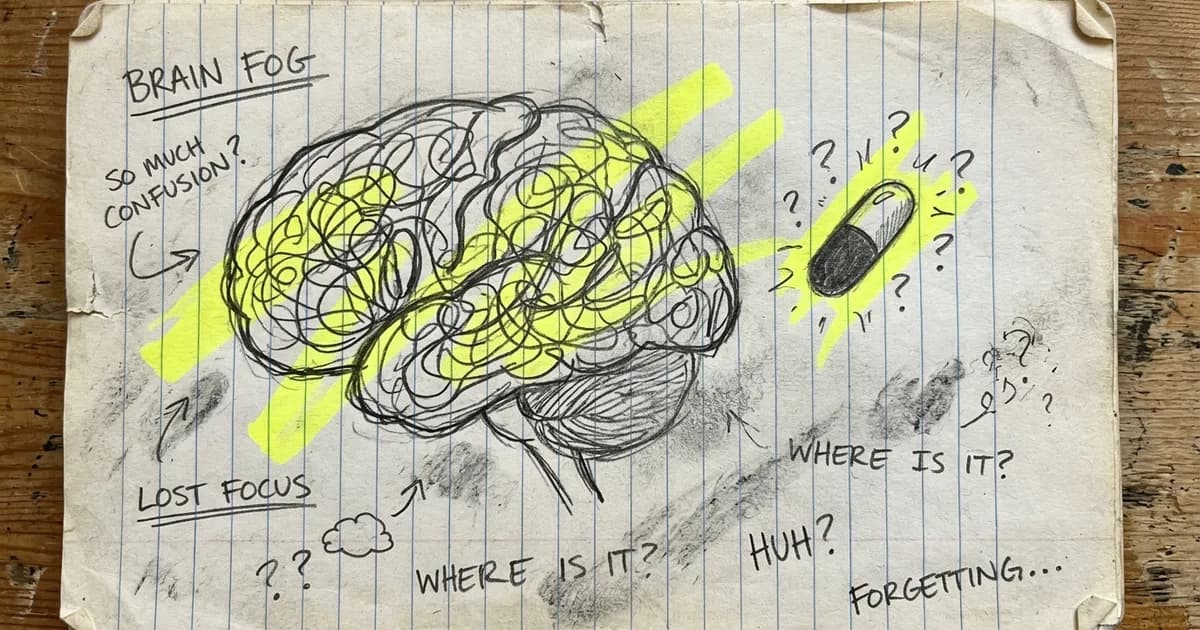 BRAIN FOG
SO MUCH
CONFUSION?
? ? ? ? ? ?
LOST FOCUS
? ?
WHERE IS IT?
WHERE IS IT?
HUH?
FORGETTING...